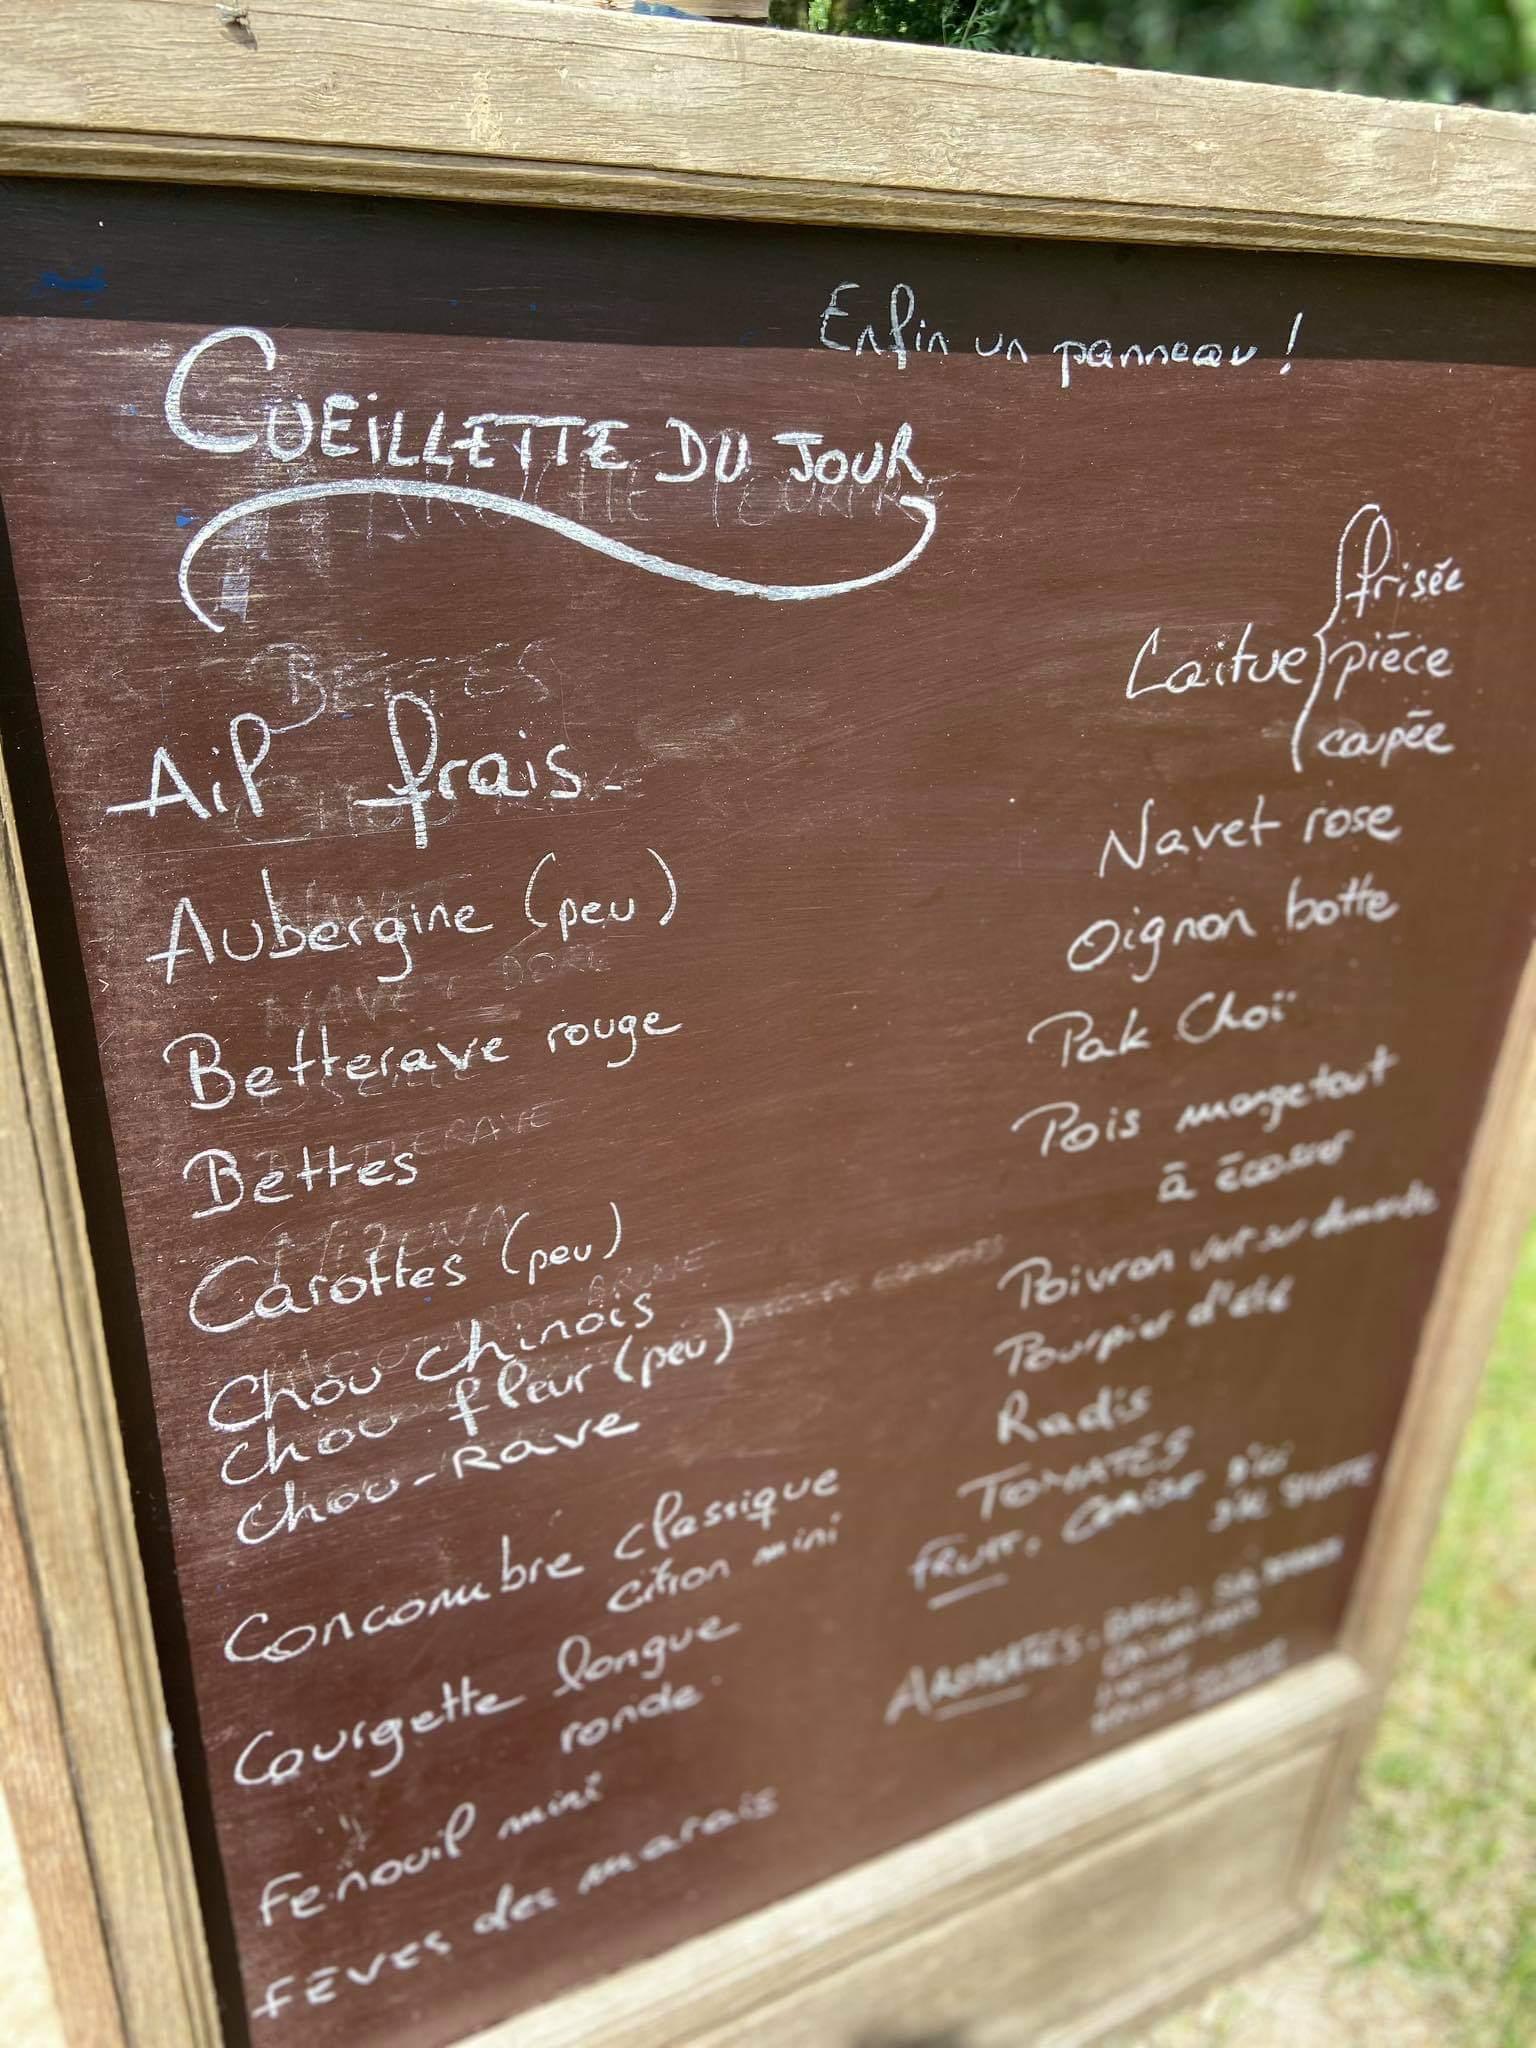 Enfin un panneau !
CUEILLETTE DU JOUR
Ail frais
Aubergine (peu)
Betterave rouge
Bettes
Carottes (peu)
Chou chinois
Chou fleur (peu)
Chou-Rave
Concombre classique
citron mini
Courgette longue
ronde
Fenouil mini
Fèves des marais
Laitue
frisée
pièce
coupée
Navet rose
Oignon botte
Pak Choï
Pois mangetout
à écosser
Poivron vert sur demande
Pourpier d'été
Radis
TOMATES
FRUIT.
AROMATES.